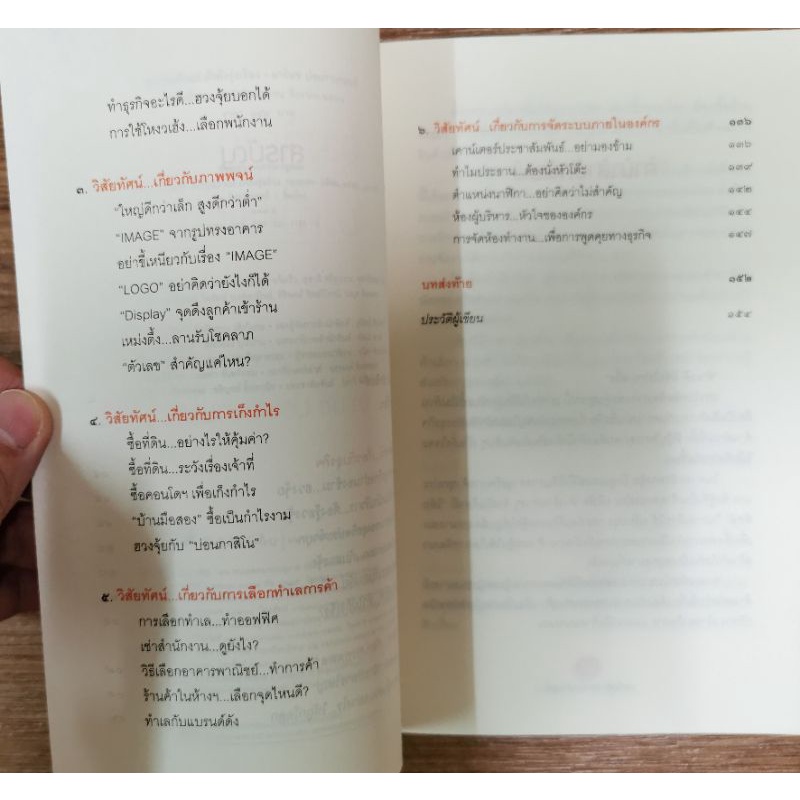 ทำธุรกิจอะไรดี...ฮวงจุ้ยบอกได้
การใช้โหงวเฮ้ง...เลือกพนักงาน
๓. วิสัยทัศน์...เกี่ยวกับภาพพจน์
“ใหญ่ดีกว่าเล็ก สูงดีกว่าต่ำ”
“IMAGE” จากรูปทรงอาคาร
อย่าขี้เหนียวกับเรื่อง “IMAGE”
“LOGO” อย่าคิดว่ายังไงก็ได้
“Display” จุดดึงลูกค้าเข้าร้าน
เหม่งตึ้ง...ลานรับโชคลาภ
“ตัวเลข” สำคัญแค่ไหน?
๔. วิสัยทัศน์...เกี่ยวกับการเก็งกำไร
ซื้อที่ดิน...อย่างไรให้คุ้มค่า?
ซื้อที่ดิน...ระวังเรื่องเจ้าที่
ซื้อคอนโดฯ เพื่อเก็งกำไร
“บ้านมือสอง” ซื้อเป็นกำไรงาม
ฮวงจุ้ยกับ “บ่อนกาสิโน”
๕. วิสัยทัศน์...เกี่ยวกับการเลือกทำเลการค้า
การเลือกทำเล...ทำออฟฟิศ
เช่าสำนักงาน...ดูยังไง?
วิธีเลือกอาคารพาณิชย์...ทำการค้า
ร้านค้าในห้างฯ...เลือกจุดไหนดี?
ทำเลกับแบรนด์ดัง
๖. วิสัยทัศน์...เกี่ยวกับการจัดระบบภายในองค์กร ๑๓๖
เคาน์เตอร์ประชาสัมพันธ์...อย่ามองข้าม ๑๓๖
ทำไมประธาน...ต้องนั่งหัวโต๊ะ ๑๓๙
ตำแหน่งนาฬิกา...อย่าคิดว่าไม่สำคัญ ๑๔๒
ห้องผู้บริหาร...หัวใจขององค์กร ๑๔๔
การจัดห้องทำงาน...เพื่อการพูดคุยทางธุรกิจ ๑๔๗
บทส่งท้าย ๑๕๒
ประวัติผู้เขียน ๑๕๔